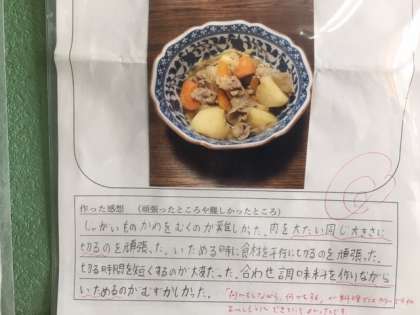 作った感想 (頑張ったところや難しかったところ)
じゃがいものかわをむくのが難しかった。肉をだいたい同じ大きさに
切るのを頑張った。いためる時に食材を平等に切るのを頑張った。
切る時間を短くするのが大変だった。合わせ調味料を作りながら
いためるのがむずかしかった。
「何かをしながら、何かをする」が料理